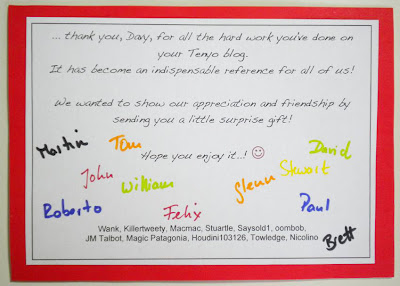 ... thank you, Davy, for all the hard work you've done on
your Tenyo blog.
It has become an indispensable reference for all of us!
We wanted to show our appreciation and friendship by
sending you a little surprise gift!
Martin Tom David
Hope you enjoy it..! ☺
John William Glenn Stewart
Roberto Felix Paul
Wank, Killertweety, Macmac, Stuartle, Saysold1, oombob,
JM Talbot, Magic Patagonia, Houdini103126, Towledge, Nicolino
Brett